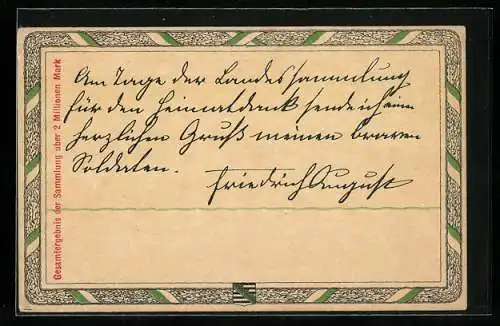 Am Tage der Landessammlung
für den Heimatdank sende ich einen
herzlichen Gruß meinen braven
Soldaten.
Friedrich August
Gesamtergebnis der Sammlung über 2 Millionen Mark